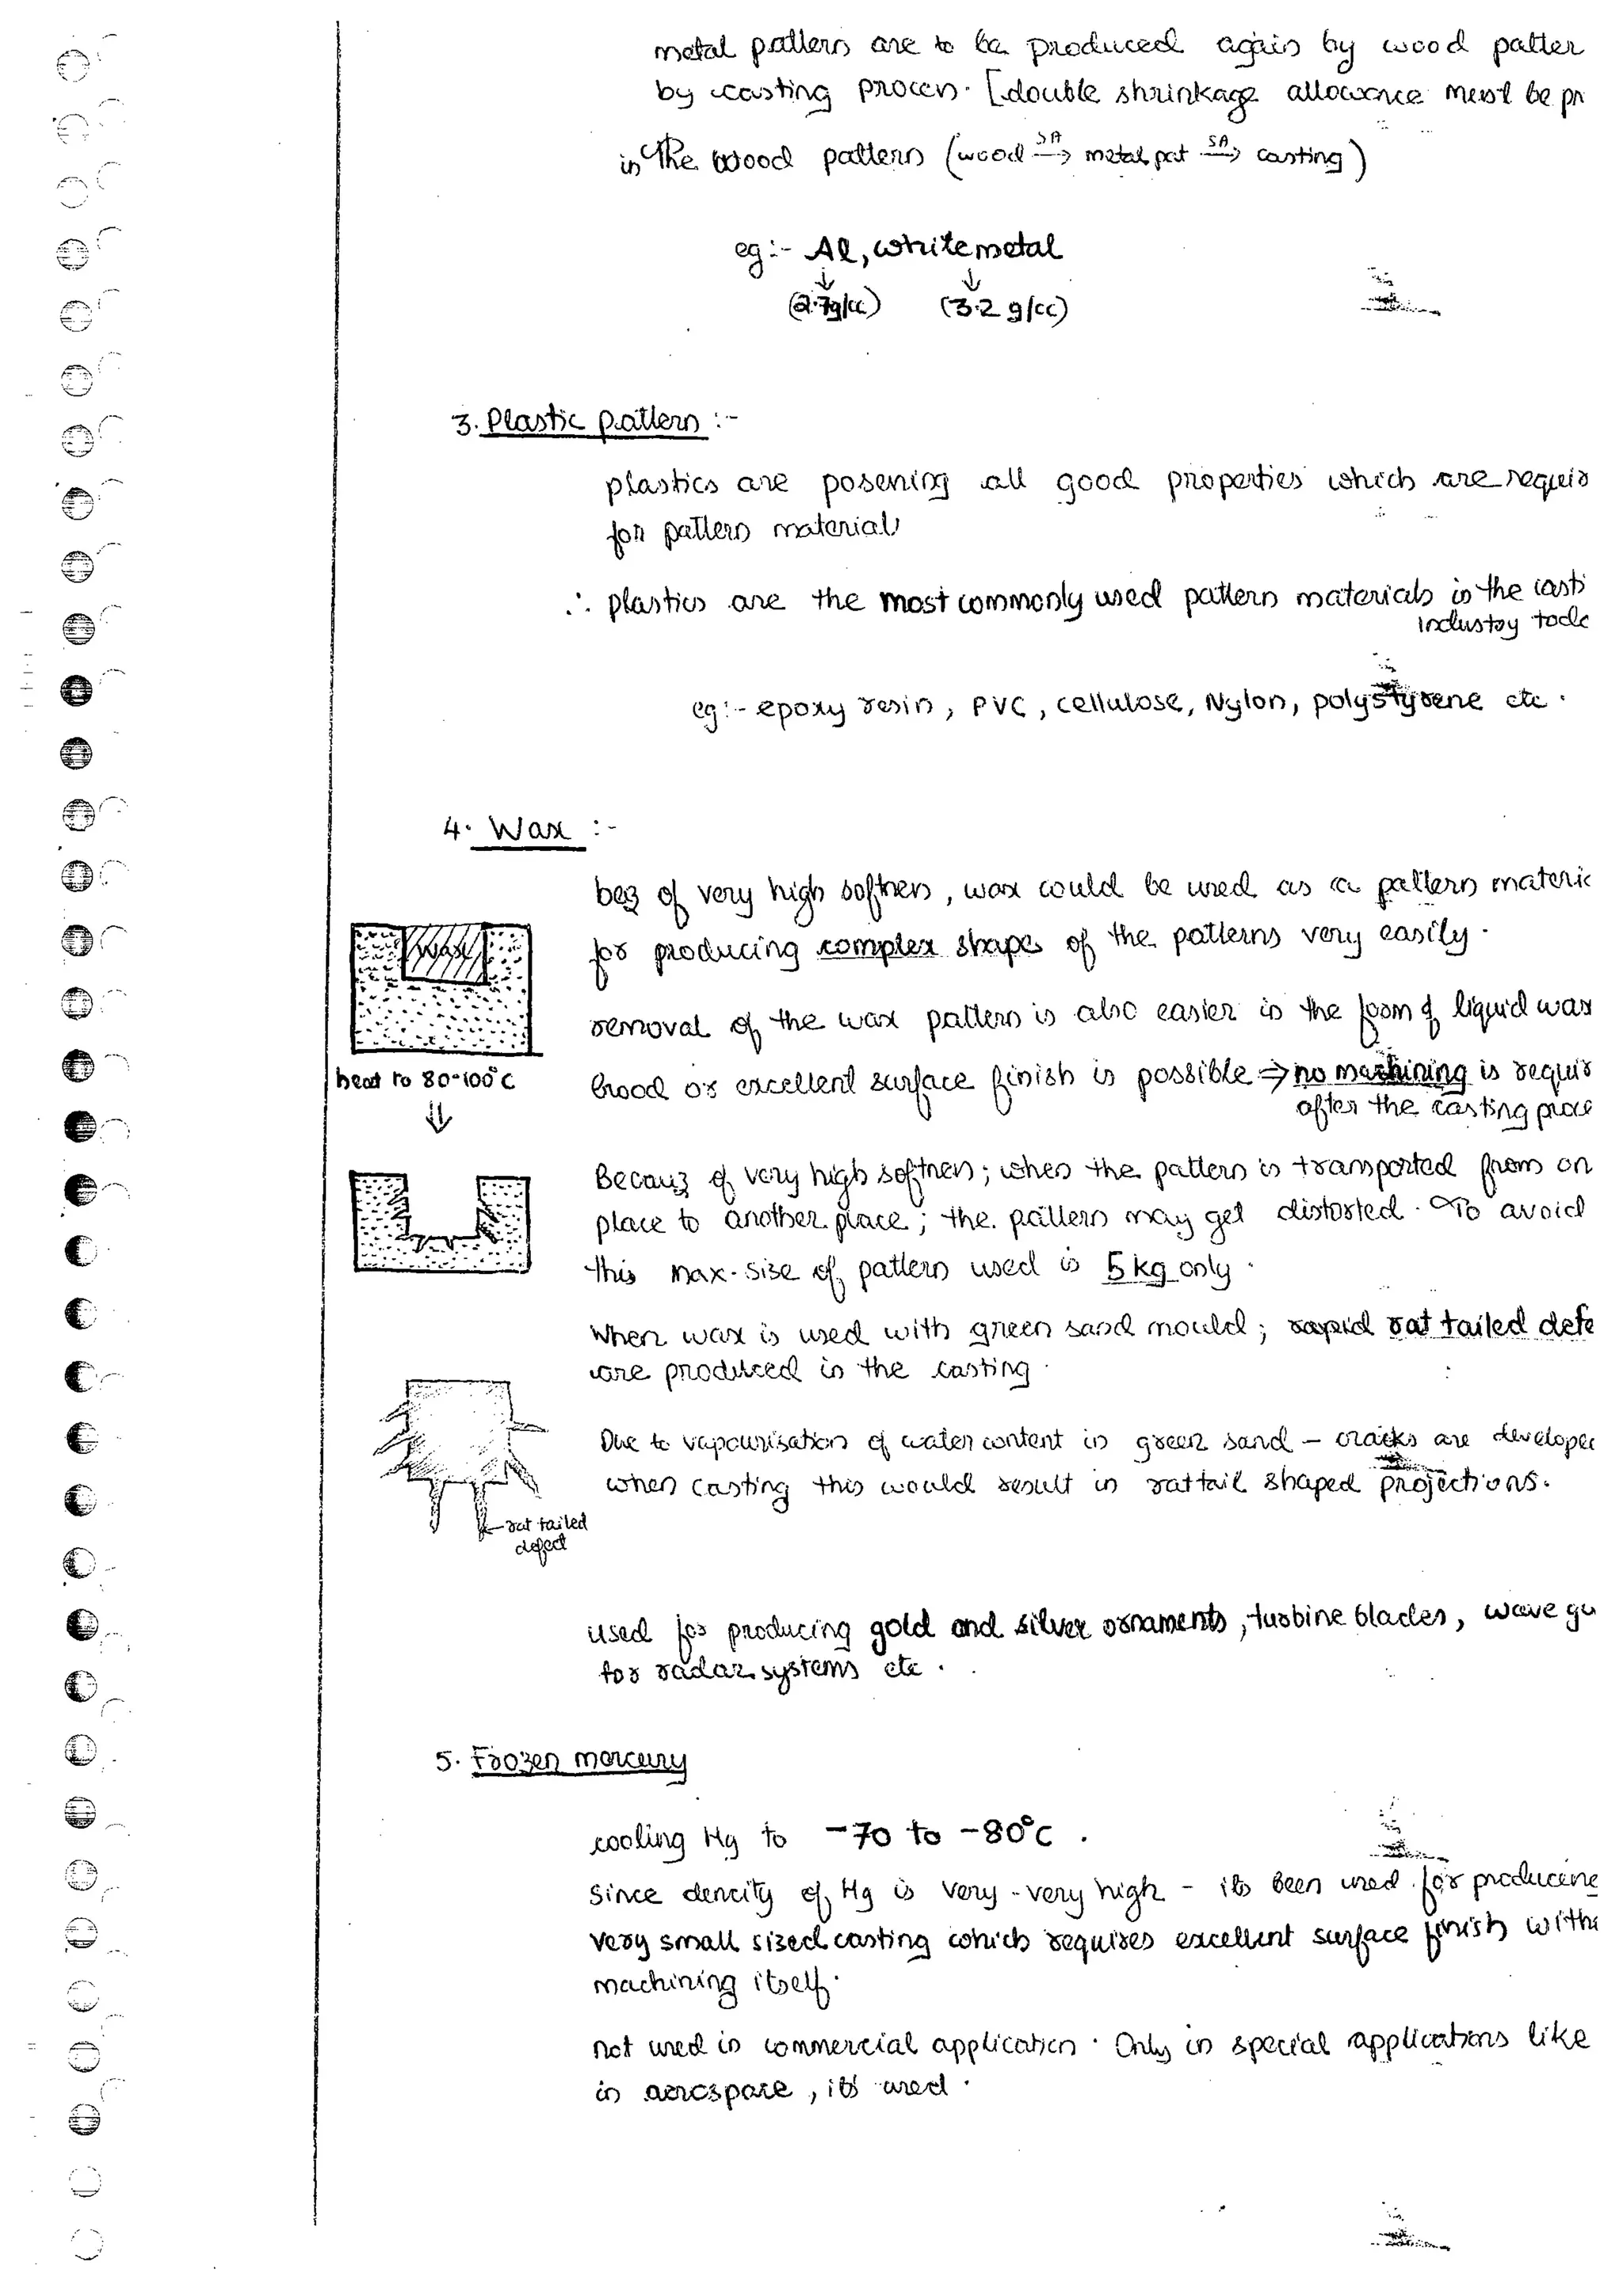 metal pattern are to be produced again by wood patter
by casting process. [double shrinkage allowance must be pr
in the wood pattern (wood SA→ metal pat SA→ casting)
eg:- Al, white metal
↓ ↓
(2.7g/cc) (3.2 g/cc)
3. Plastic pattern :-
plastics are possening all good properties which are requir
for pattern material
∴ plastics are the most commonly used pattern materials in the casti
industry toda
eg:- epoxy resin, PVC, cellulose, Nylon, polystyrene etc.
4. Wax :-
bcz of very high softness, wax could be used as a pattern materia
for producing complex shape of the patterns very easily.
wax
removal of the wax pattern is also easier in the form of liquid wax
heat to 80-100°C
⇓
Good or excellent surface finish is possible ⇒ no machining is requir
after the casting proce
Becauz of very high softness; when the pattern is transported from on
place to another place; the pattern may get distorted. To avoid
this max. size of pattern used is 5 kg only.
When wax is used with green sand mould; rapid rat tailed defe
are produced in the casting.
Due to vapourisation of water content in green sand - cracks are develope
when casting this would result in rat tail shaped projections.
rat tailed
defect
used for producing gold and silver ornaments, turbine blades, wave gu
for radar systems etc.
5. Frozen mercury
cooling Hg to -70 to -80°C.
Since dencity of Hg is very-very high - its been used for producing
very small sized casting which requires excellent surface finish witho
machining itself.
not used in commercial application. Only in special applications like
in aerospace, its used.